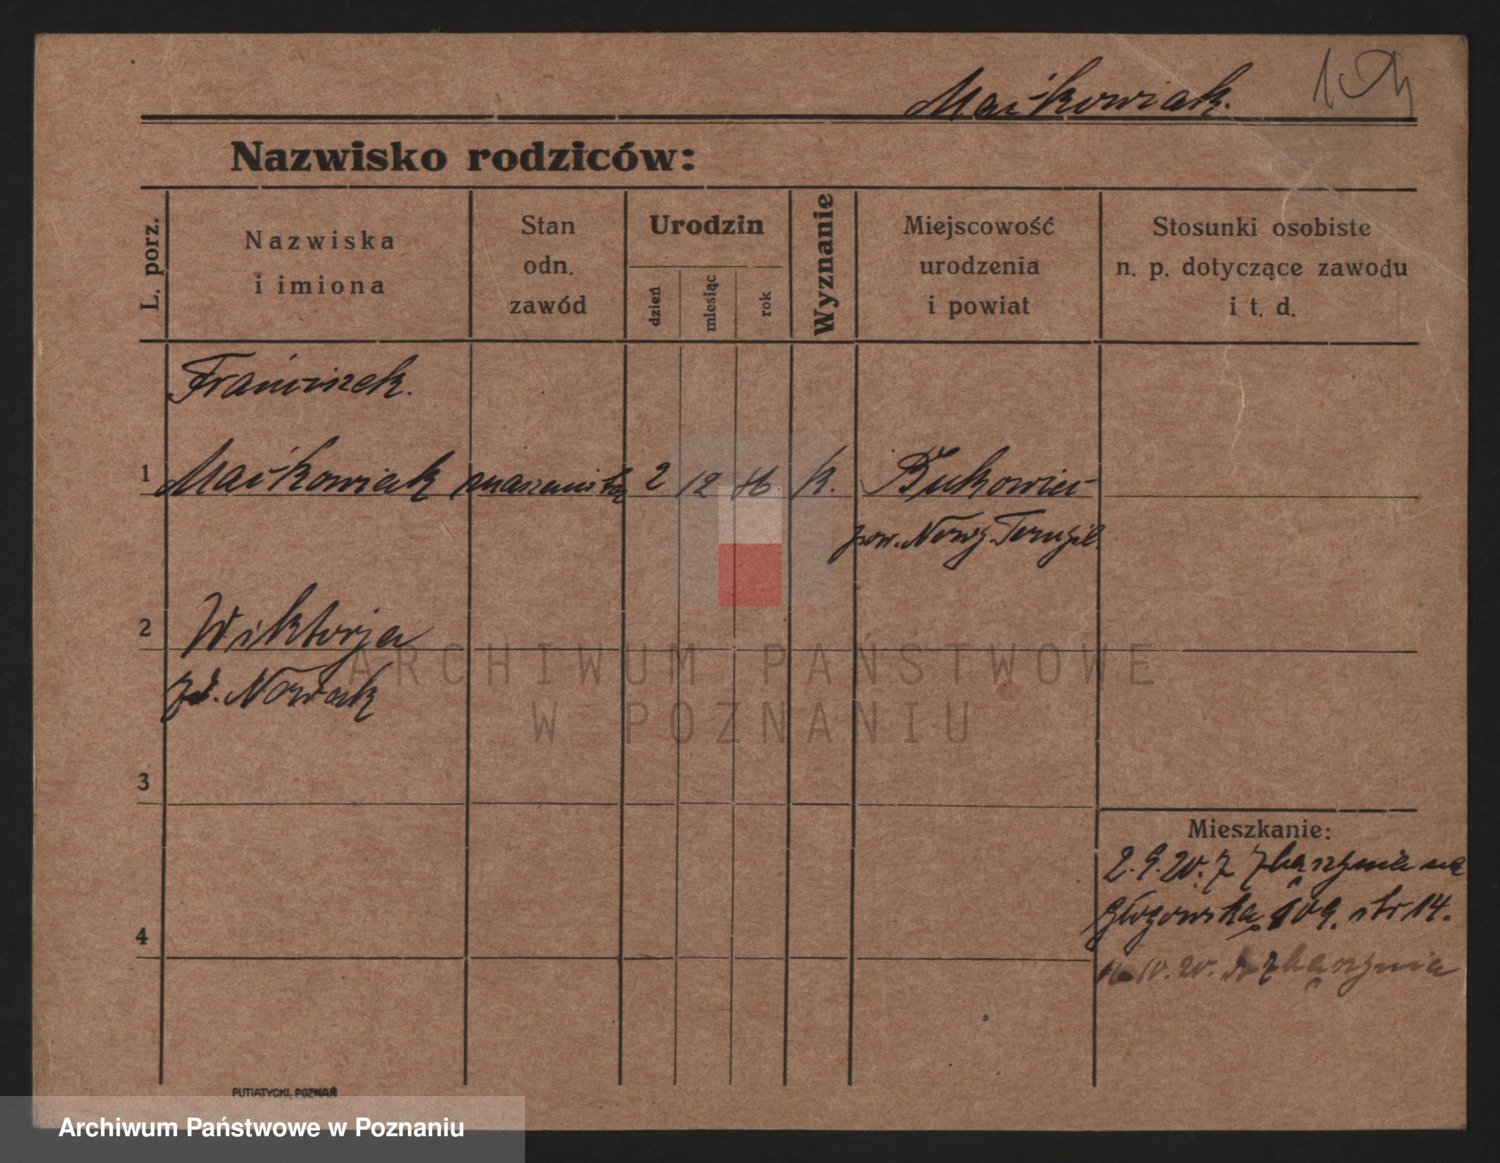 Maćkowiak.
Nazwisko rodziców:
L. porz.
Nazwiska
i imiona
Stan
odn.
zawód
Urodzin
dzień
miesiąc
rok
Wyznanie
Miejscowość
urodzenia
i powiat
Stosunki osobiste
n. p. dotyczące zawodu
i t. d.
Franciszek.
1 Maćkowiak maszenista 2 12 86 k. Bukowiec
pow. Nowy Tomyśl.
2 Wiktorja
zd. Nowak
3
4
Mieszkanie:
2.9.20. z Zbąszynia na
Głogowska 109. str 14.
10.20. do Zbąszynia
PUTIATYCKI, POZNAŃ
ARCHIWUM PAŃSTWOWE
W POZNANIU
Archiwum Państwowe w Poznaniu